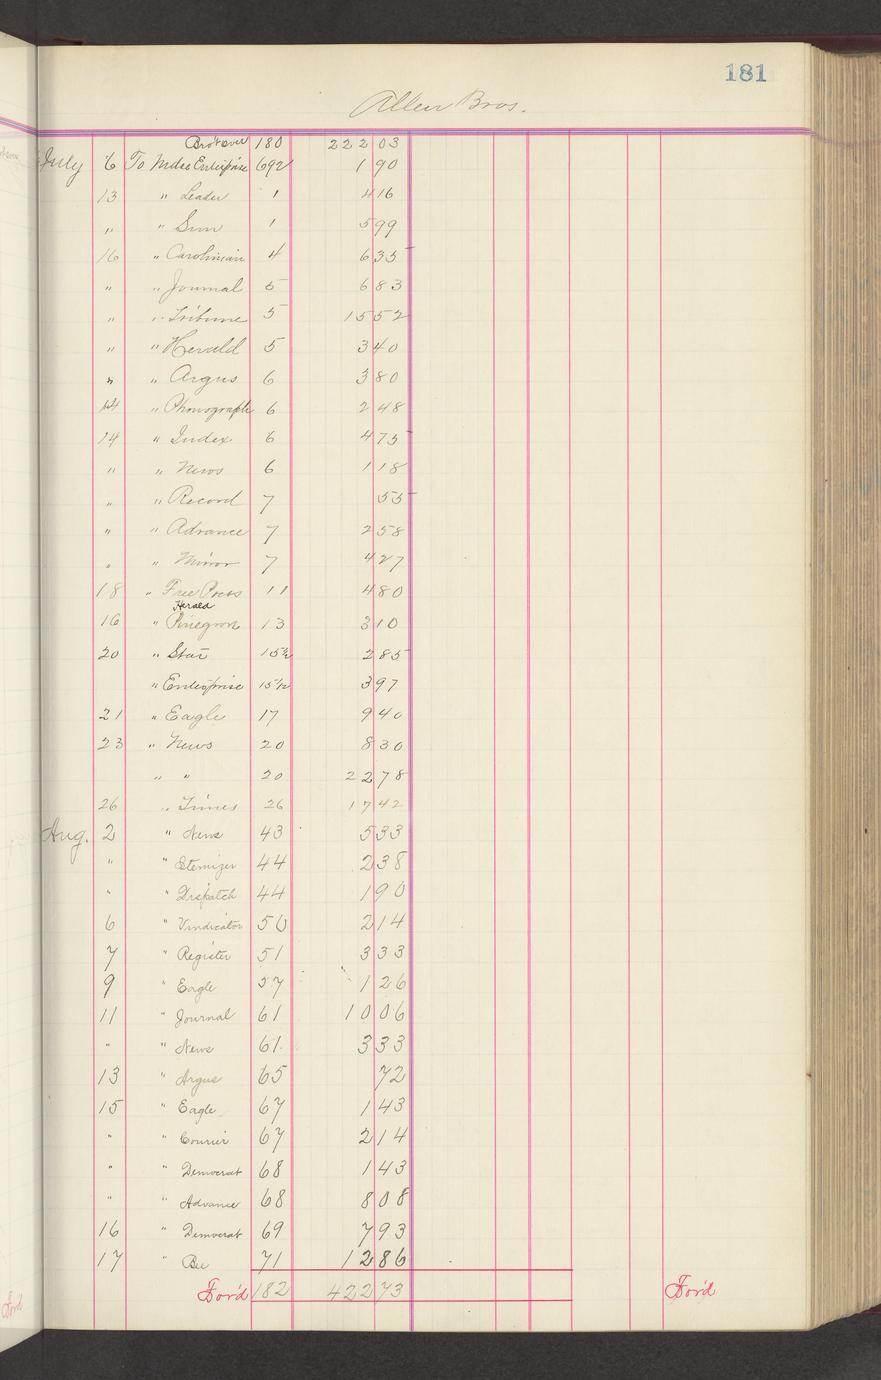 181
Allen Bros.
Bro't over 180 222 03
July 6 To Mdse Enterprise 692 1 90
13 " Leader 1 4 16
" " Sun 1 5 99
16 " Carolinian 4 6 35
" " Journal 5 6 83
" " Tribune 5 15 52
" " Herald 5 3 40
" " Argus 6 3 80
14 " Phonograph 6 2 48
14 " Index 6 4 75
" " News 6 1 18
" " Record 7 55
" " Advance 7 2 58
" " Mirror 7 4 27
18 " Free Press 11 4 80
Herald
16 " 13 3 10
20 " Star 15½ 2 85
" Enterprise 15½ 3 97
21 " Eagle 17 9 40
23 " News 20 8 30
" " 20 22 78
26 " Times 26 17 42
Aug. 2 " News 43 5 33
" " Itemizer 44 2 38
" " Dispatch 44 1 90
6 " Vindicator 50 2 14
7 " Register 51 3 33
9 " Eagle 57 1 26
11 " Journal 61 10 06
" " News 61 3 33
13 " Argus 65 72
15 " Eagle 67 1 43
" " Courier 67 2 14
" " Democrat 68 1 43
" " Advance 68 8 08
16 " Democrat 69 7 93
17 " Bee 71 12 86
For'd 182 422 73 For'd
For'd